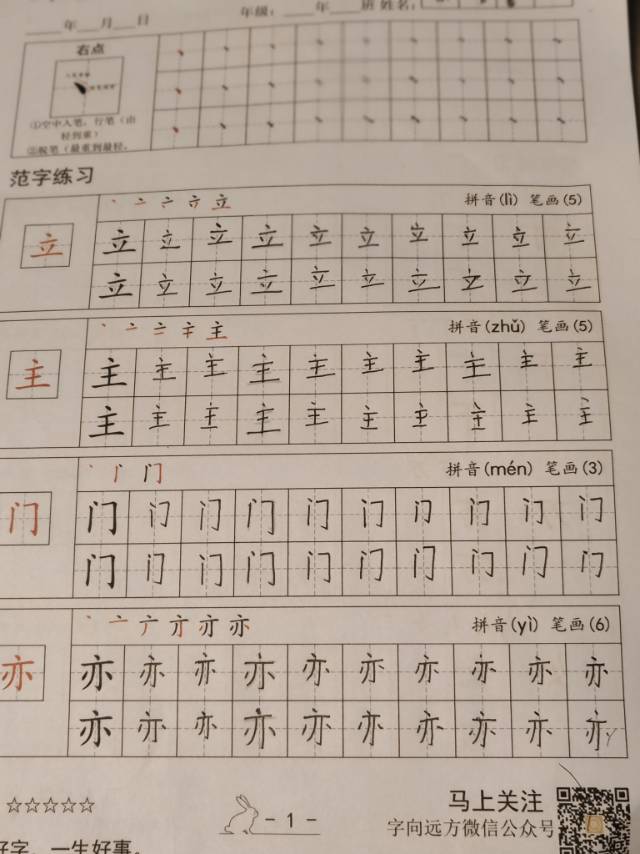 ____年___月___日 年级：____年____班 姓名：
右点
①空中入笔，行笔（由
轻到重）
②脱笔（最重到最轻。
范字练习
立 拼音(lì) 笔画(5)
立 立 立 立 立 立 立 立 立 立 立
立 立 立 立 立 立 立 立 立 立
主 拼音(zhǔ) 笔画(5)
主 主 主 主 主 主 主 主 主 主 主
主 主 主 主 主 主 主 主 主 主
门 拼音(mén) 笔画(3)
门 门 门 门 门 门 门 门 门 门 门
门 门 门 门 门 门 门 门 门 门
亦 拼音(yì) 笔画(6)
亦 亦 亦 亦 亦 亦 亦 亦 亦 亦 亦
亦 亦 亦 亦 亦 亦 亦 亦 亦 亦
☆☆☆☆☆ - 1 - 马上关注
字向远方微信公众号
好字，一生好事。